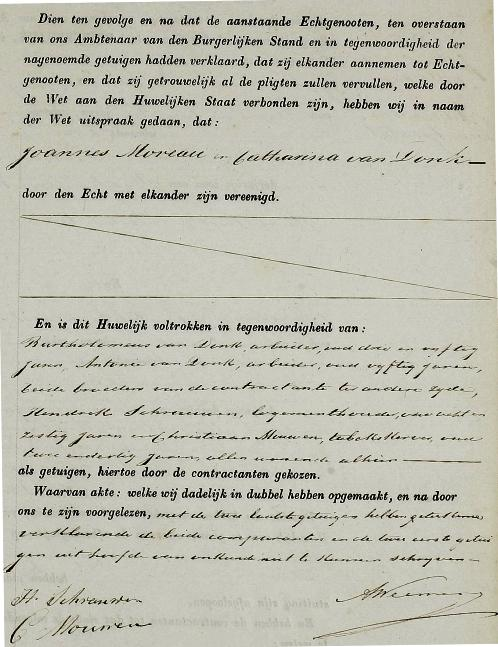 Dien ten gevolge en na dat de aanstaande Echtgenooten, ten overstaan
van ons Ambtenaar van den Burgerlijken Stand en in tegenwoordigheid der
nagenoemde getuigen hadden verklaard, dat zij elkander aannemen tot Echt-
genooten, en dat zij getrouwelijk al de pligten zullen vervullen, welke door
de Wet aan den Huwelijken Staat verbonden zijn, hebben wij in naam
der Wet uitspraak gedaan, dat:
Joannes Moreau en Catharina van Donk
door den Echt met elkander zijn vereenigd.
En is dit Huwelijk voltrokken in tegenwoordigheid van:
Bartholomeus van Donk, arbeider, oud drie en vijftig
jaren, Antonie van Donk, arbeider, oud vijftig jaren,
beide broeders van de contractante ter andere zyde,
Hendrik Schrauwen, logementhouder, oud acht en
zestig jaren en Christiaan Mouwen, tabakskerver, oud
twee en dertig jaren, allen wonende alhier
als getuigen, hiertoe door de contractanten gekozen.
Waarvan akte: welke wij dadelijk in dubbel hebben opgemaakt, en na door
ons te zijn voorgelezen, met de twee laatste getuigen hebben geteekend
verklarende de beide comparanten en de twee eerste getui
gen uit hoofde van onkunde niet te kunnen schryven
H. Schrauwen
C. Mouwen